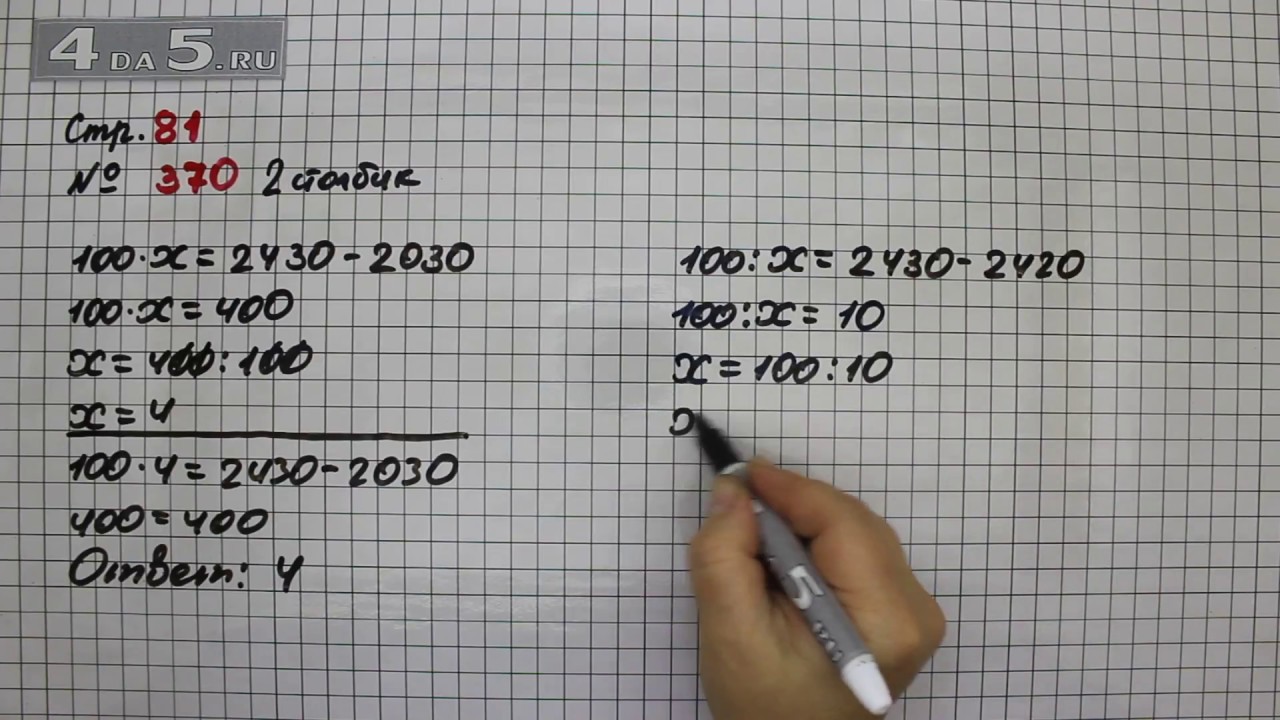 4 DA 5.RU
Стр. 81
№ 370 2 столбик
100·x = 2430 - 2030
100·x = 400
x = 400 : 100
x = 4
100 · 4 = 2430 - 2030
400 = 400
Ответ: 4
100 : x = 2430 - 2420
100 : x = 10
x = 100 : 10
x
5